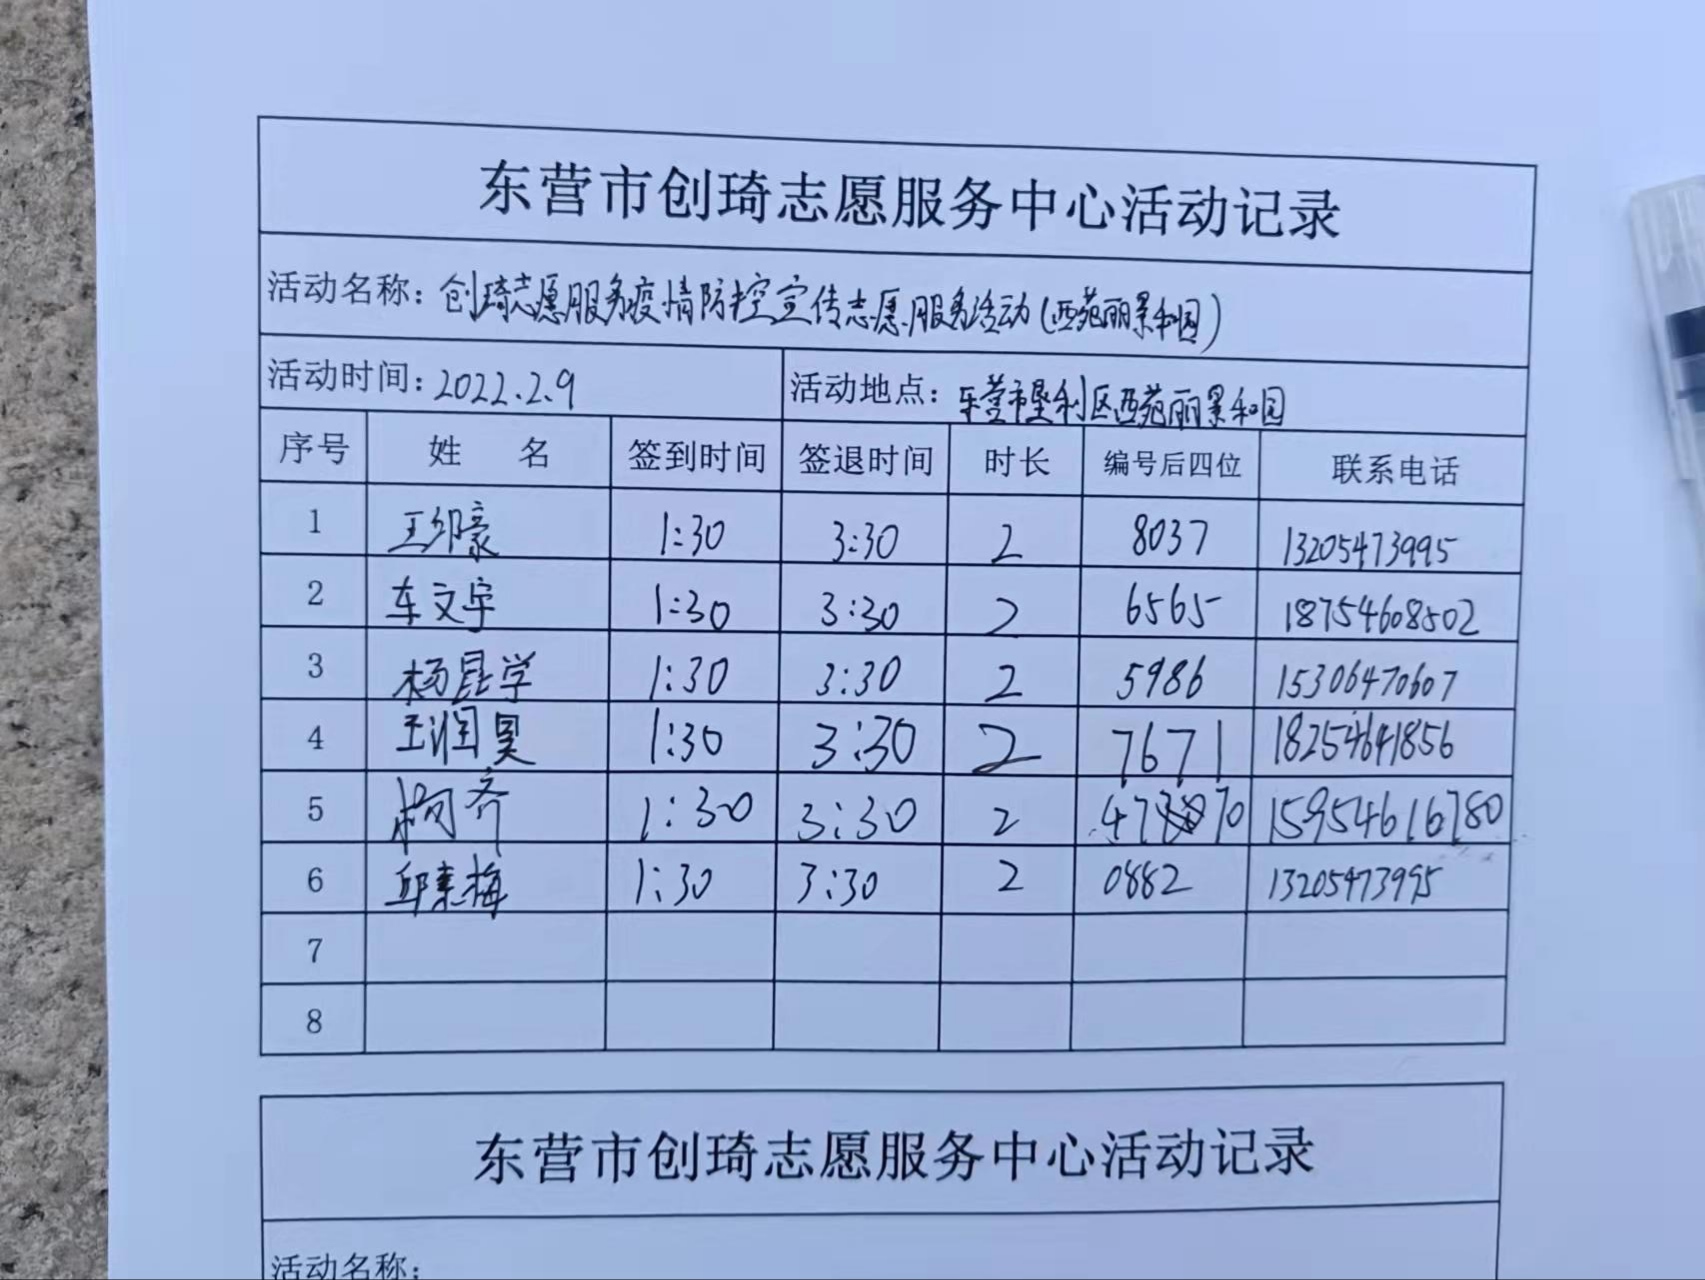 东营市创琦志愿服务中心活动记录
活动名称：创琦志愿服务疫情防控宣传志愿服务活动(西苑丽景和园)
活动时间：2022.2.9 活动地点：东营市垦利区西苑丽景和园
序号 姓 名 签到时间 签退时间 时长 编号后四位 联系电话
1 王绍豪 1:30 3:30 2 8037 13205473995
2 车文宇 1:30 3:30 2 6565 18754608502
3 杨昆学 1:30 3:30 2 5986 15306470607
4 王润昊 1:30 3:30 2 7671 18254641856
5 杨齐 1:30 3:30 2 4770 15954616780
6 邱素梅 1:30 3:30 2 0882 13205473995
7
8
东营市创琦志愿服务中心活动记录
活动名称：